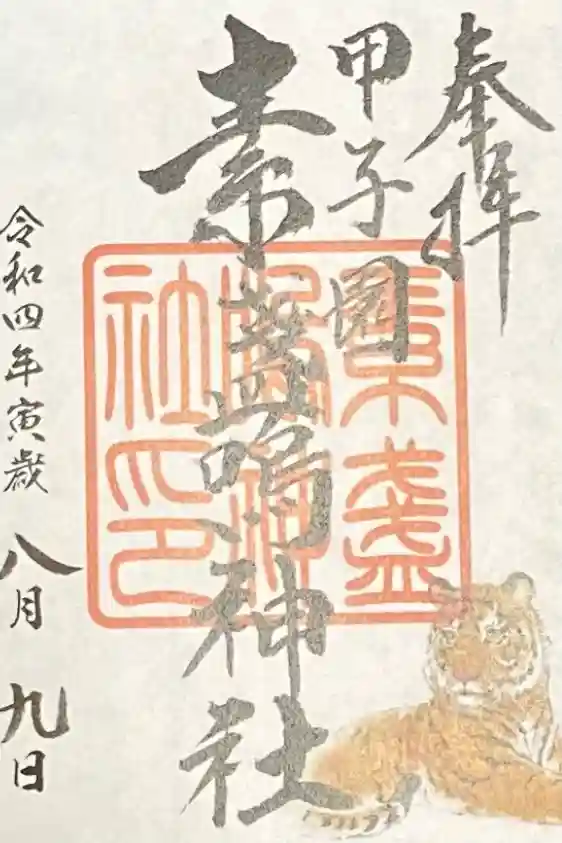 奉拝
甲子園
素盞嗚神社
素盞
嗚神
社印
令和四年寅歳
八月九日